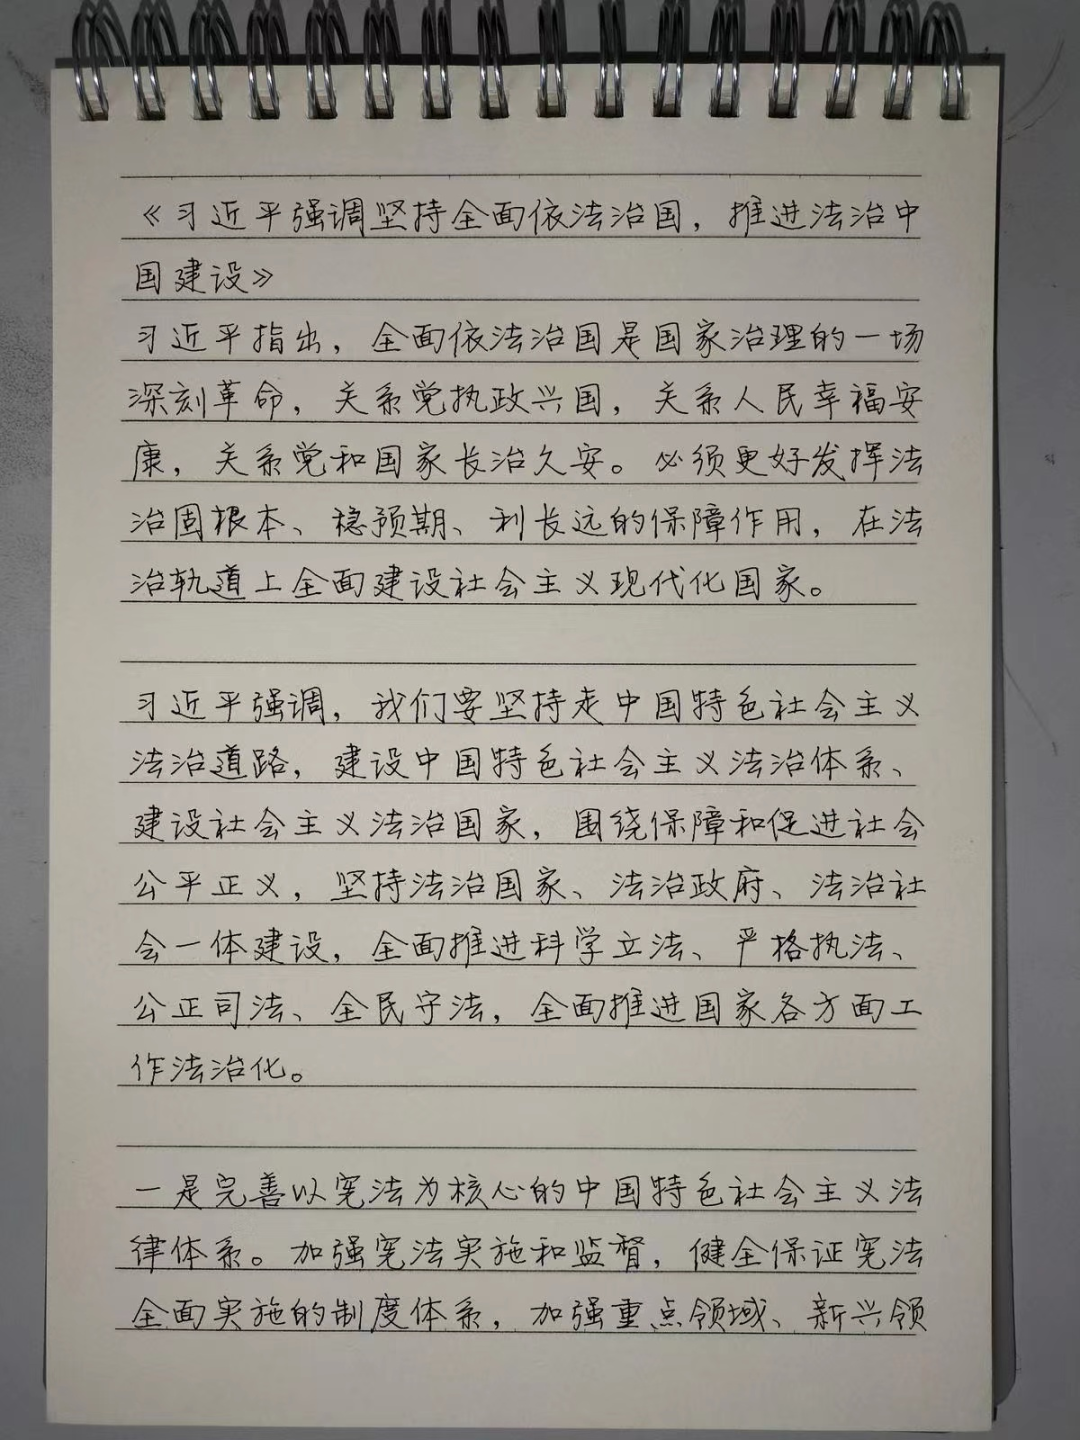 《习近平强调坚持全面依法治国，推进法治中
国建设》
习近平指出，全面依法治国是国家治理的一场
深刻革命，关系党执政兴国，关系人民幸福安
康，关系党和国家长治久安。必须更好发挥法
治固根本、稳预期、利长远的保障作用，在法
治轨道上全面建设社会主义现代化国家。
习近平强调，我们要坚持走中国特色社会主义
法治道路，建设中国特色社会主义法治体系、
建设社会主义法治国家，围绕保障和促进社会
公平正义，坚持法治国家、法治政府、法治社
会一体建设，全面推进科学立法、严格执法、
公正司法、全民守法，全面推进国家各方面工
作法治化。
一是完善以宪法为核心的中国特色社会主义法
律体系。加强宪法实施和监督，健全保证宪法
全面实施的制度体系，加强重点领域、新兴领